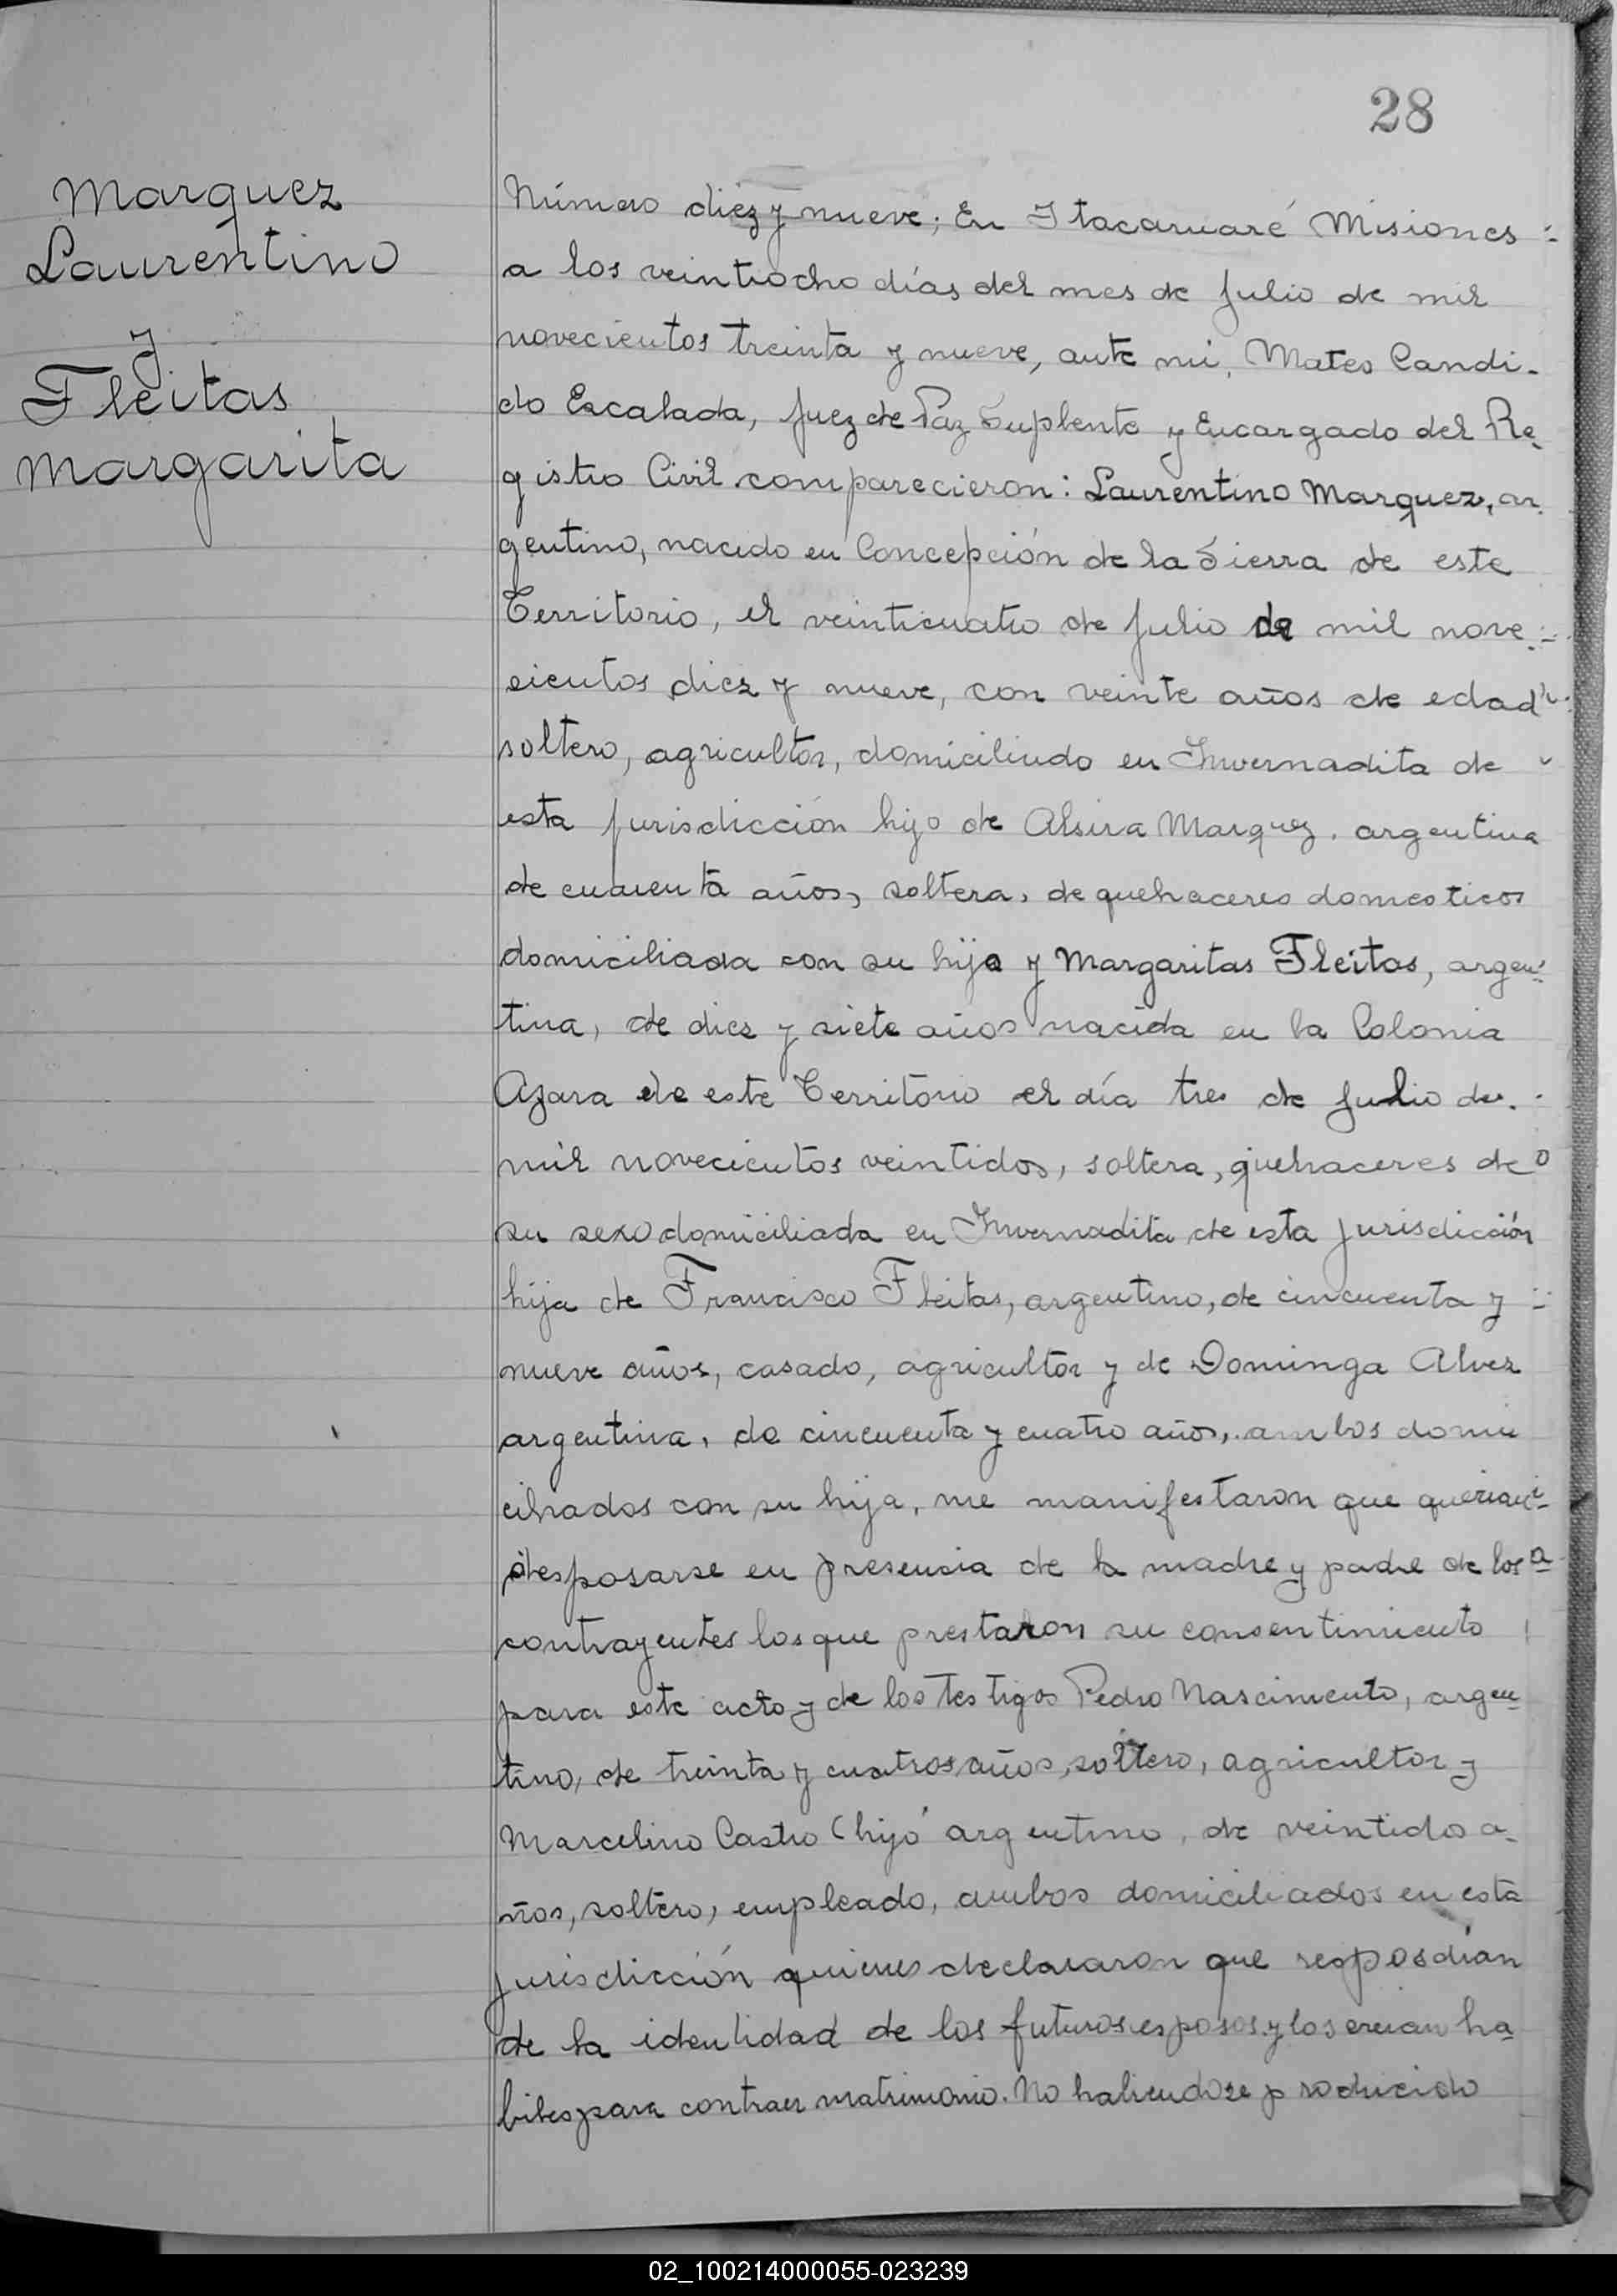 28
Marquez
Laurentino
y
Fleitas
Margarita
Número diez y nueve; En Itacaruaré Misiones
a los veintiocho días del mes de Julio de mil
novecientos treinta y nueve, ante mi, Mateo Candi-
do Escalada, Juez de Paz Suplente y Encargado del Re-
gistro Civil comparecieron: Laurentino Marquez, ar
gentino, nacido en Concepción de la Sierra de este
Territorio, el veinticuatro de Julio de mil nove-
cientos diez y nueve, con veinte años de edad
soltero, agricultor, domiciliado en Invernadita de
esta jurisdicción hijo de Alsira Marquez, argentina
de cuarenta años, soltera, de quehaceres domesticos
domiciliada con su hijo y Margaritas Fleitas, argen-
tina, de diez y siete años nacida en la Colonia
Azara de este Territorio el día tres de Julio de
mil novecientos veintidos, soltera, quehaceres de
su sexo domiciliada en Invernadita de esta jurisdicción
hija de Francisco Fleitas, argentino, de cincuenta y
nueve años, casado, agricultor y de Dominga Alvez
argentina, de cincuenta y cuatro años, ambos domi
ciliados con su hija, me manifestaron que querian
desposarse en presencia de la madre y padre de los
contrayentes los que prestaron su consentimiento
para este acto y de los testigos Pedro Nascimento, argen
tino, de treinta y cuatros años, soltero, agricultor y
Marcelino Castro (hijo argentino, de veintidos a-
ños, soltero, empleado, ambos domiciliados en esta
jurisdicción quienes declararon que resposdían
de la identidad de los futuros esposos y los creian ha-
biles para contraer matrimonio. No habiendose producido
02_100214000055-023239